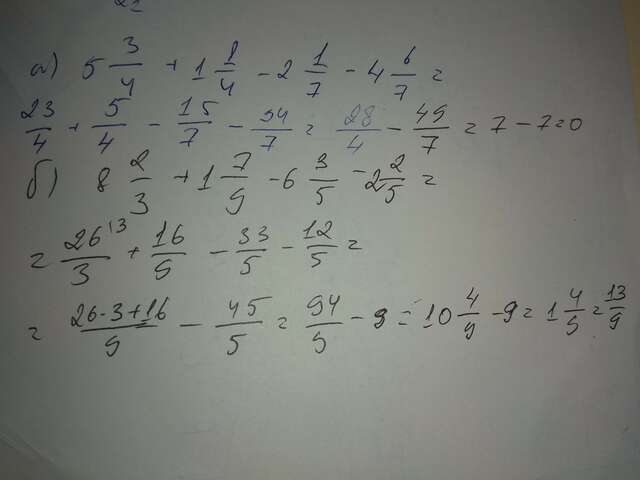 а) 5 3/4 + 1 1/4 - 2 1/7 - 4 6/7 =
23/4 + 5/4 - 15/7 - 34/7 = 28/4 - 49/7 = 7 - 7 = 0
б) 8 2/3 + 1 7/9 - 6 3/5 - 2 2/5 =
= 26/3 \3 + 16/9 - 33/5 - 12/5 =
= 26·3+16/9 - 45/5 = 94/9 - 9 = 10 4/9 - 9 = 1 4/9 = 13/9